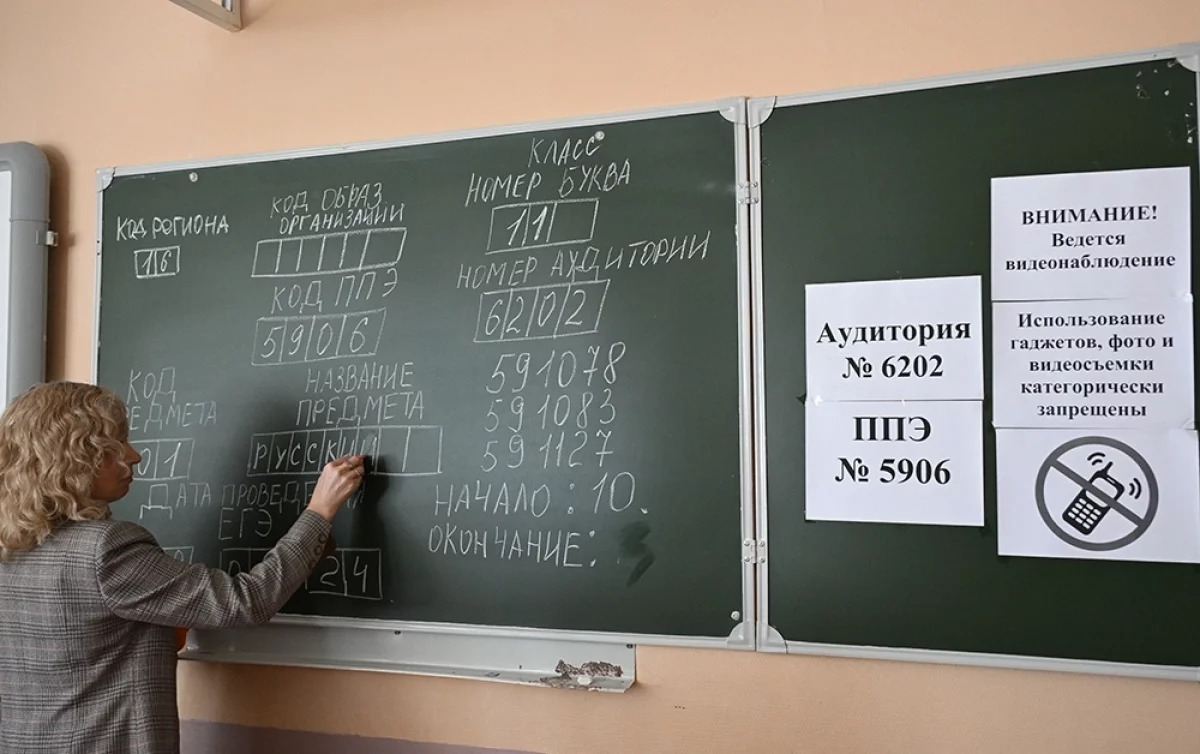 КОД РЕГИОНА
16
КОД ОБРАЗ
ОРГАНИЗАЦИИ
КЛАСС
НОМЕР БУКВА
11
КОД ППЭ
5906
НОМЕР АУДИТОРИИ
6202
КОД
ЕДМЕТА
01
НАЗВАНИЕ
ПРЕДМЕТА
РУССКИЙ
591078
591083
591127
ДАТА ПРОВЕДЕ
ЕГЭ
24
НАЧАЛО: 10.
ОКОНЧАНИЕ:
Аудитория
№ 6202
ППЭ
№ 5906
ВНИМАНИЕ!
Ведется
видеонаблюдение
Использование
гаджетов, фото и
видеосъемки
категорически
запрещены